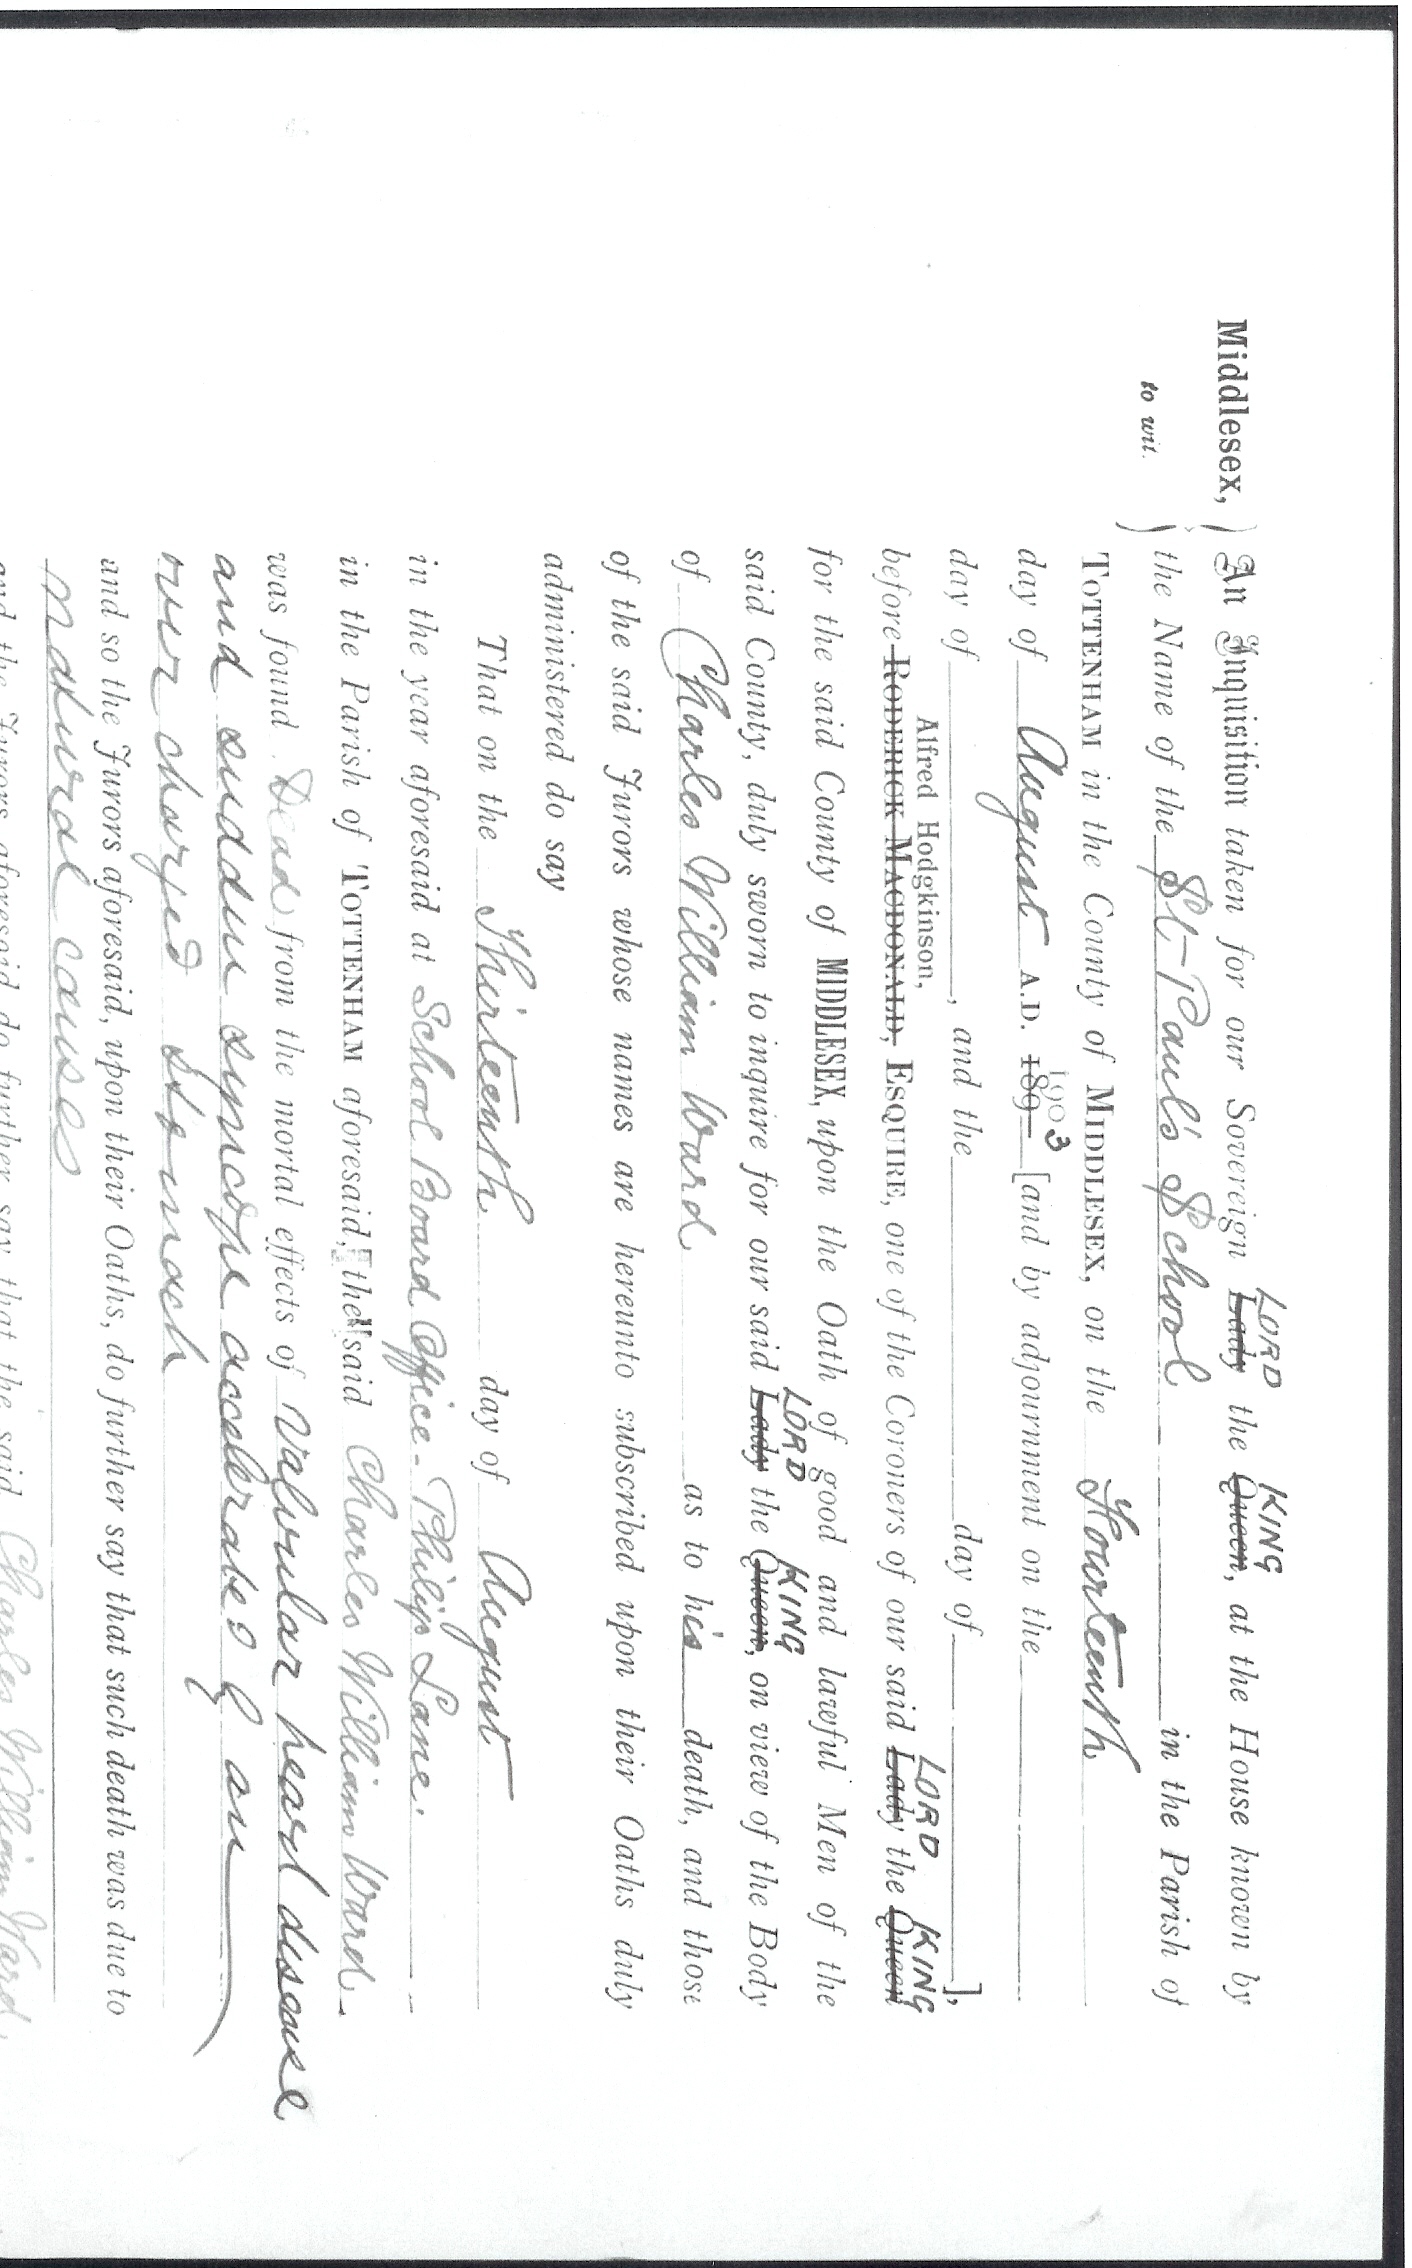 LORD KING
Middlesex, } An Inquisition taken for our Sovereign Lady the Queen, at the House known by
to wit. } the Name of the St Paul's School in the Parish of
TOTTENHAM in the County of MIDDLESEX, on the Fourteenth
1903
day of August A.D. 189 [and by adjournment on the
day of , and the day of ],
Alfred Hodgkinson, LORD KING
before RODERICK MACDONALD, ESQUIRE, one of the Coroners of our said Lady the Queen
for the said County of MIDDLESEX, upon the Oath of good and lawful Men of the
LORD KING
said County, duly sworn to inquire for our said Lady the Queen, on view of the Body
of Charles William Ward as to his death, and those
of the said Jurors whose names are hereunto subscribed upon their Oaths duly
administered do say
That on the Thirteenth day of August
in the year aforesaid at School Board Office - Philip Lane.
in the Parish of TOTTENHAM aforesaid, the said Charles William Ward.
was found Dead from the mortal effects of Valvular heart disease
and sudden syncope accelerated by an
over charged stomach
and so the Jurors aforesaid, upon their Oaths, do further say that such death was due to
natural causes
and the Jurors aforesaid do further say that the said Charles William Ward.